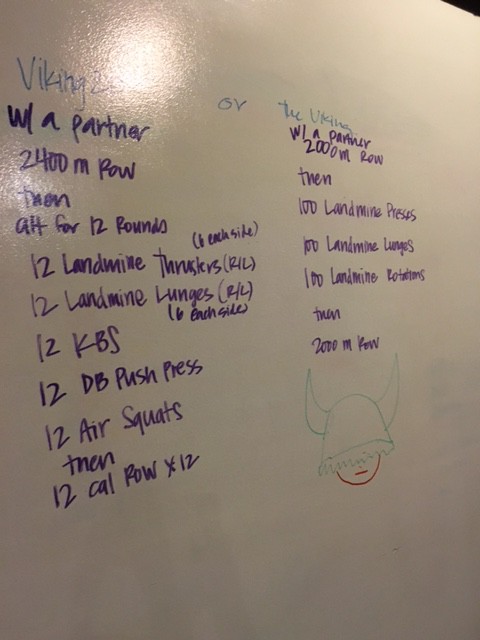 Viking 2
w/ a partner
2400 m Row
then
alt for 12 Rounds
(6 each side)
12 Landmine Thrusters (R/L)
12 Landmine Lunges (R/L)
(6 each side)
12 KBS
12 DB Push Press
12 Air Squats
then
12 cal Row x 12
or
the Viking
w/ a partner
2000m Row
then
100 Landmine Presses
100 Landmine Lunges
100 Landmine Rotations
then
2000 m Row